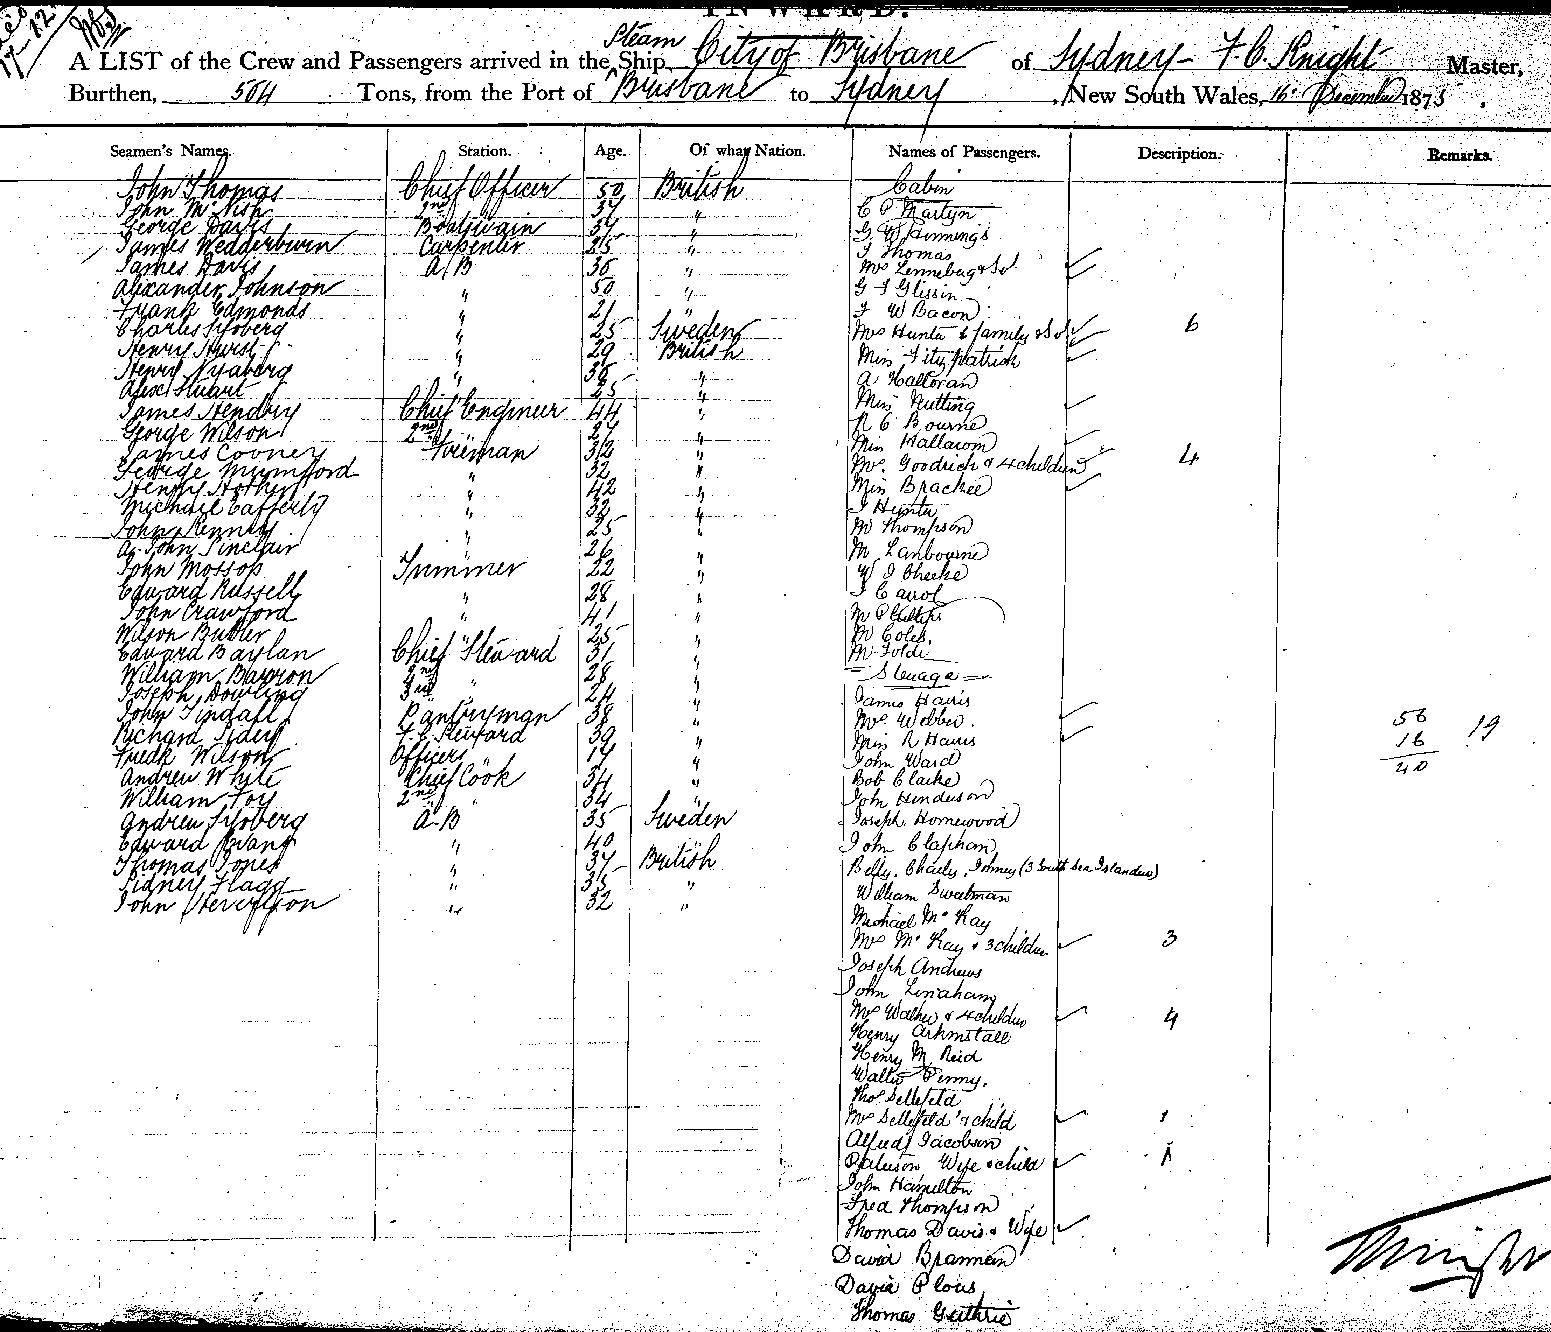 INWARD.
A LIST of the Crew and Passengers arrived in the Steam Ship City of Brisbane of Sydney - F. C. Knight Master,
Burthen, 504 Tons, from the Port of Brisbane to Sydney, New South Wales, 16 December 1875.
Seamen's Names. Station. Age. Of what Nation. Names of Passengers. Description. Remarks.
John Thomas Chief Officer 50 British
John McNish 2nd " 37 "
George Davis Boatswain 34 "
James Wedderburn Carpenter 25 "
James Davis A/B 36 "
Alexander Johnson " 50 "
Frank Edmonds " 21 "
Charles Sjoberg " 25 Sweden
Henry Hurst " 29 British
Henry Nyaberg " 36 "
Alex Stuart " 25 "
James Hendby Chief Engineer 44 "
George Wilson 2nd " 27 "
James Cooney Fireman 32 "
George Mumford " 32 "
Henry " 42 "
Michael Cafferty " 32 "
John Kenney " 25 "
A. John Sinclair " 26 "
John Mossop Trimmer 22 "
Edward Russell " 28 "
John Crawford " 41 "
Wilson Butler " 25 "
Edward Baylan Chief Steward 31 "
William Barron 2nd " 28 "
Joseph Dowling 3rd " 24 "
John Tindall Pantryman 38 "
Richard F.C. Steward 39 "
Fredk Wilson Officers " 19 "
Andrew White Chief Cook 34 "
William Foy 2nd " 34 "
Andrew Sjoberg A.B 35 Sweden
Edward Evans " 40 "
Thomas Jones " 37 British
Sidney Flagg " 35 "
John " 32 "
Cabin
C P Martyn
G W Hinnings
J Thomas
Mrs Lennebug & Sv
G F Glissin
F W Bacon
Mrs Hunter & family & Sv 6
Miss Fitzpatrick
A Halloran
Miss Nutting
R C Bourne
Miss Hallarom
Mrs. Goodrich & 4 children 4
Miss Brackee
J Hunter
Mr Thompson
Mr Lanbourne
W J Cheeke
J Carrol
Mr Phillips
Mr Coles.
Mr Foldi
Steerage
James Harris
Mrs Webber.
Miss R Harris
John Ward
Bob Clarke
John Henderson
Joseph Homewood
John Clapham
Betty, Charley, Johney (3 South Sea Islanders)
William Swatman
Michael McKay
Mrs McKay & 3 children 3
Joseph Andrews
John Linaham
Mrs Walker & 4 children 4
Henry Arkinstall
Henry M Reid
Walter Penny.
Thos Sellefeld
Mrs Sellefeld & child 1
Alfred Jacobsen
Wife & child 1
John Hamilton
Fred Thompson
Thomas Davis & Wife
David Brannen
David Plows
Thomas Guthrie
56 19
16
40